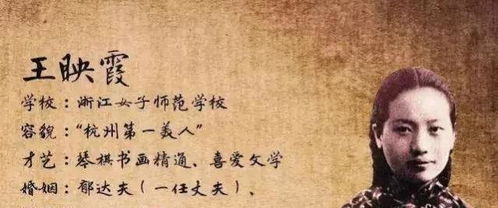 王映霞
学校：浙江女子师范学校
容貌：“杭州第一美人”
才艺：琴棋书画精通、喜爱文学
婚姻：郁达夫（一任丈夫）、